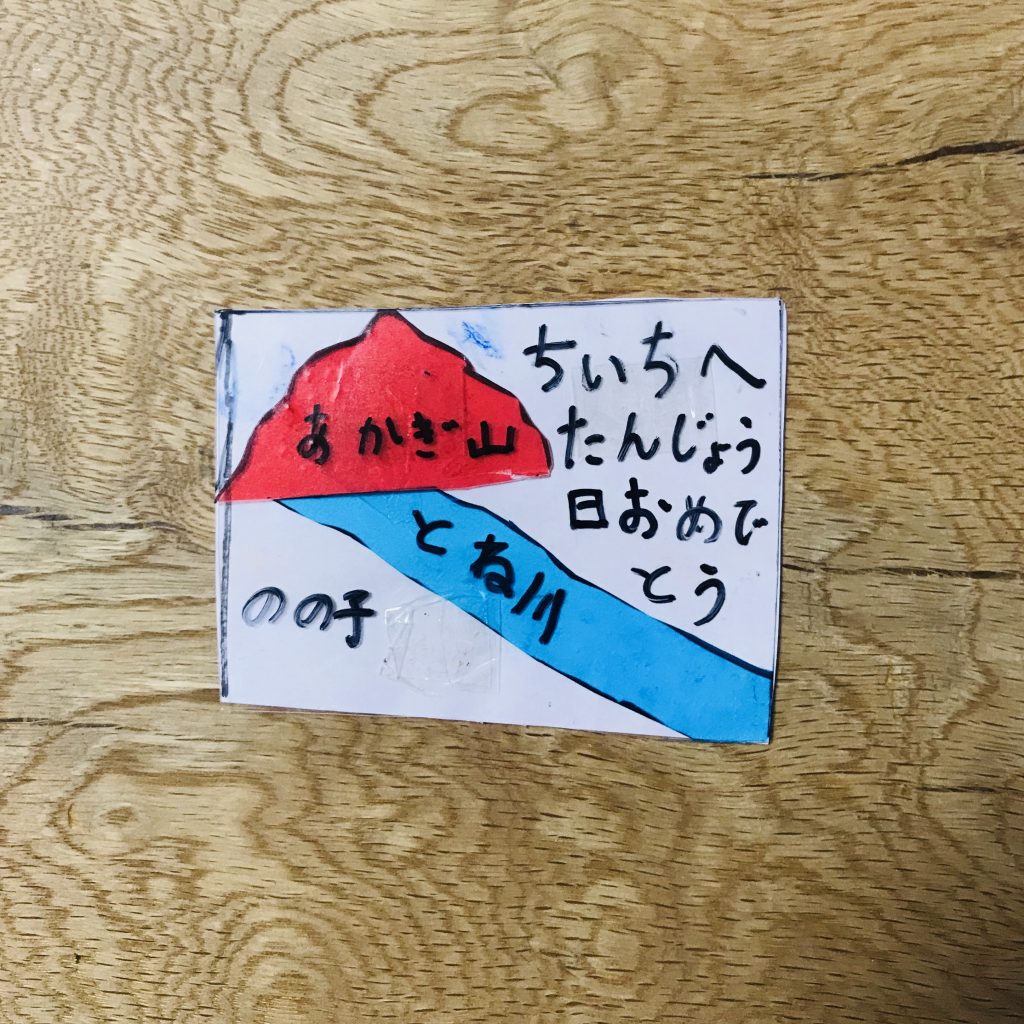 ちいちへ
たんじょう
日おめで
とう
あかぎ山
とね川
のの子